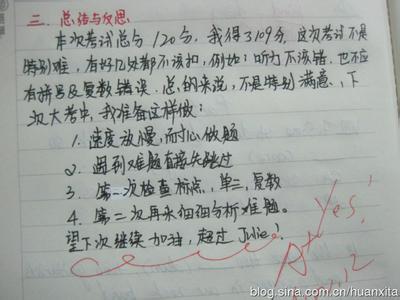 三、总结与反思
本次考试总分120分，我得了109分，这次考试不是
特别难，有好几处都不该扣，例如：听力不该错，也不应
有拼写及复数错误。总的来说，不是特别满意，下
次大考中，我准备这样做：
1. 速度放慢，耐心做题
2. 遇到难题直接先跳过
3. 第一次检查标点，单三，复数
4. 第二次再来细细分析难题。
望下次继续加油，超过Julie！
Yes!
A+
blog.sina.com.cn/huanxita